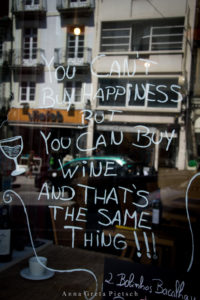 YOU CAN'T
BUY HAPPINESS
BUT
YOU CAN BUY
WINE
AND THAT'S
THE SAME
THING!!!
2 Bolinhos Bacalhau
Anna Greta Pietsch